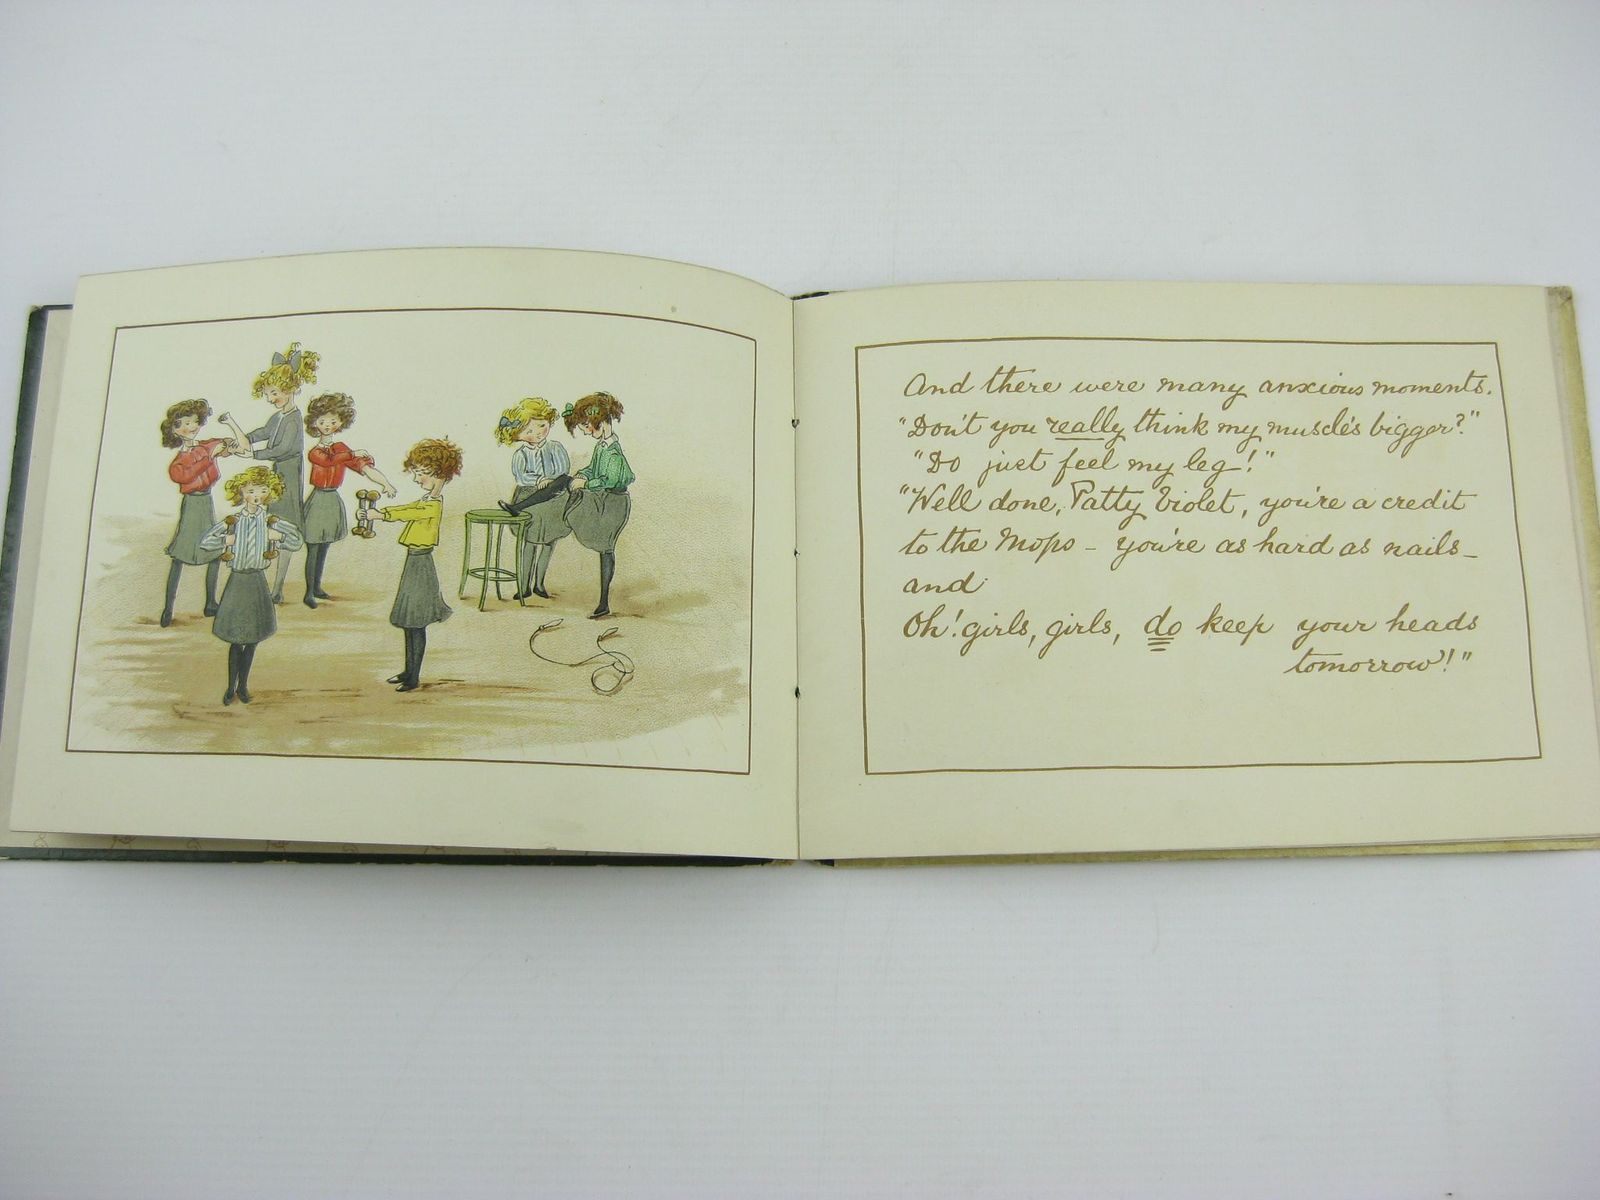 And there were many anxious moments.
"Don't you really think my muscle's bigger?"
"Do just feel my leg!"
"Well done, Patty Violet, you're a credit
to the Mops - you're as hard as nails -
and
Oh! girls, girls, do keep your heads
tomorrow!"